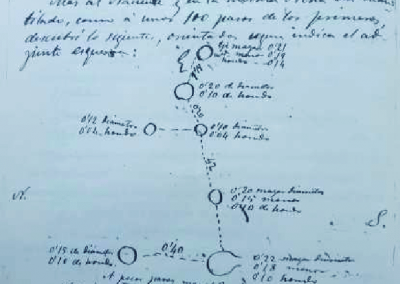 Mas al Naciente y en la misma
tilado, como á unos 100 pasos de los primeros,
descubrí lo siguiente, orientados segun indica el ad-
junto esquema:
eje mayor 0'21
id. menor 0'19
hondo 0'14
0'20 de diametro
0'10 de hondo
0'12 diametro
0'04 hondo
0'10 diametro
0'04 hondo
0'20 mayor diametro
0'15 menor
0'10 de hondo
N.
S.
0'15 de diametro
0'10 de hondo.
0'40
0'22 mayor diametro
0'18 menor
0'10 hondo
A pocos pasos